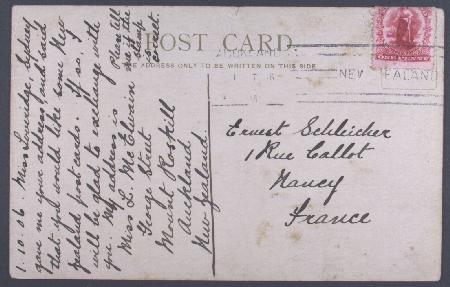 POST CARD
THE ADDRESS ONLY TO BE WRITTEN ON THIS SIDE.
NEW ZEALAND
ONE PENNY
1.10.06. Miss Loveridge, Sydney
gave me your address, and said
that you would like some New
Zealand post cards. If so. I
will be glad to exchange with
you. My address is
Miss L. McElwain
George Street
Mount Roskill
Auckland
New Zealand.
Please fill
the stamp
Ernest Schleicher
1 Rue Callot
Nancy
France